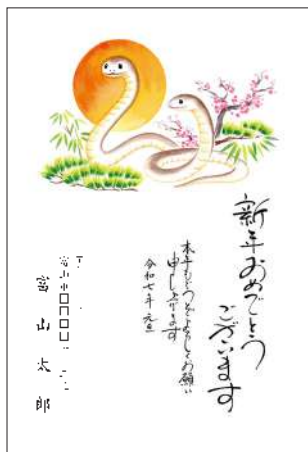 新年おめでとう
ございます
本年もどうぞよろしくお願い
申し上げます
令和七年 元旦
〒
富山市□□□□
富山太郎